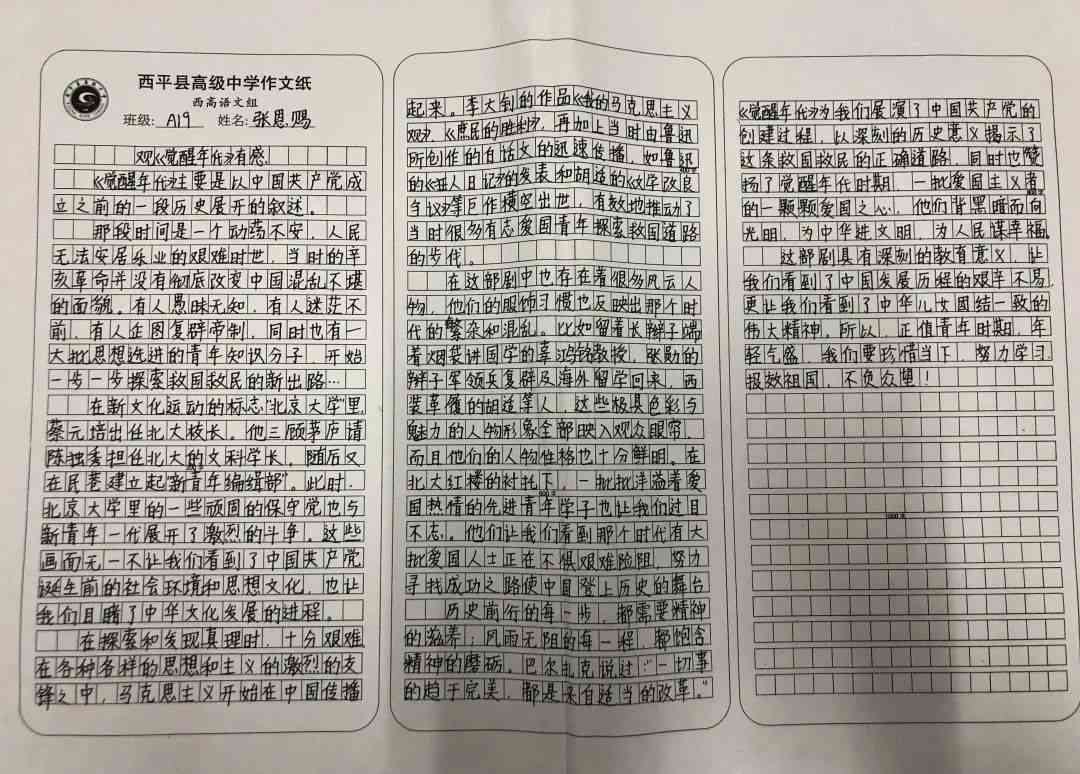 西平县高级中学作文纸
西高语文组
班级: A19 姓名: 张恩赐
观《觉醒年代》有感
《觉醒年代》主要是以中国共产党成
立之前的一段历史展开的叙述。
那段时间是一个动荡不安，人民
无法安居乐业的艰难时世，当时的辛
亥革命并没有彻底改变中国混乱不堪
的面貌。有人愚昧无知，有人迷茫不
前，有人企图复辟帝制，同时也有一
大批思想先进的青年知识分子，开始
一步一步探索救国救民的新出路…
在新文化运动的标志"北京大学"里，
蔡元培出任北大校长。他三顾茅庐请
陈独秀担任北大的文科学长，随后又
在民巷建立起"新青年编缉部"。此时，
北京大学里的一些顽固的保守党也与
新青年一代展开了激烈的斗争。这些
画面无一不让我们看到了中国共产党
诞生前的社会环境和思想文化，也让
我们目睹了中华文化发展的进程。
在探索和发现真理时，十分艰难
在各种各样的思想和主义的激烈的交
锋之中，马克思主义开始在中国传播
起来。李大钊的作品《我的马克思主义
观》、《庶民的胜利》，再加上当时由鲁迅
所创作的白话文的迅速传播，如鲁迅
的《狂人日记》的发表和胡适的《文学改良
刍议》等巨作横空出世，有效地推动了
当时很多有志爱国青年探索救国道路
的步伐。
在这部剧中也存在着很多风云人
物，他们的服饰习惯也反映出那个时
代的繁杂和混乱。比如留着长辫子端
着烟袋讲国学的辜鸿铭教授，张勋的
辫子军领兵复辟及海外留学回来，西
装革履的胡适等人，这些极具色彩与
魅力的人物形象全部映入观众眼帘，
而且他们的人物性格也十分鲜明。在
北大红楼的衬托下，一批批洋溢着爱
国热情的先进青年学子也让我们过目
不忘。他们让我们看到那个时代有大
批爱国人士正在不惧艰难险阻，努力
寻找成功之路使中国登上历史的舞台
历史前行的每一步，都需要精神
的滋养；风雨无阻的每一程，都饱含
精神的磨砺。巴尔扎克说过："一切事
的趋于完美，都是来自适当的改革。"
《觉醒年代》为我们展演了中国共产党的
创建过程，以深刻的历史意义揭示了
这条救国救民的正确道路，同时也赞
扬了觉醒年代时期，一批爱国主义者
的一颗颗爱国之心，他们背黑暗而向
光明，为中华进文明，为人民谋幸福。
这部剧具有深刻的教育意义，让
我们看到了中国发展历程的艰辛不易，
更让我们看到了中华儿女团结一致的
伟大精神。所以，正值青年时期，年
轻气盛，我们要珍惜当下，努力学习
报效祖国，不负众望！